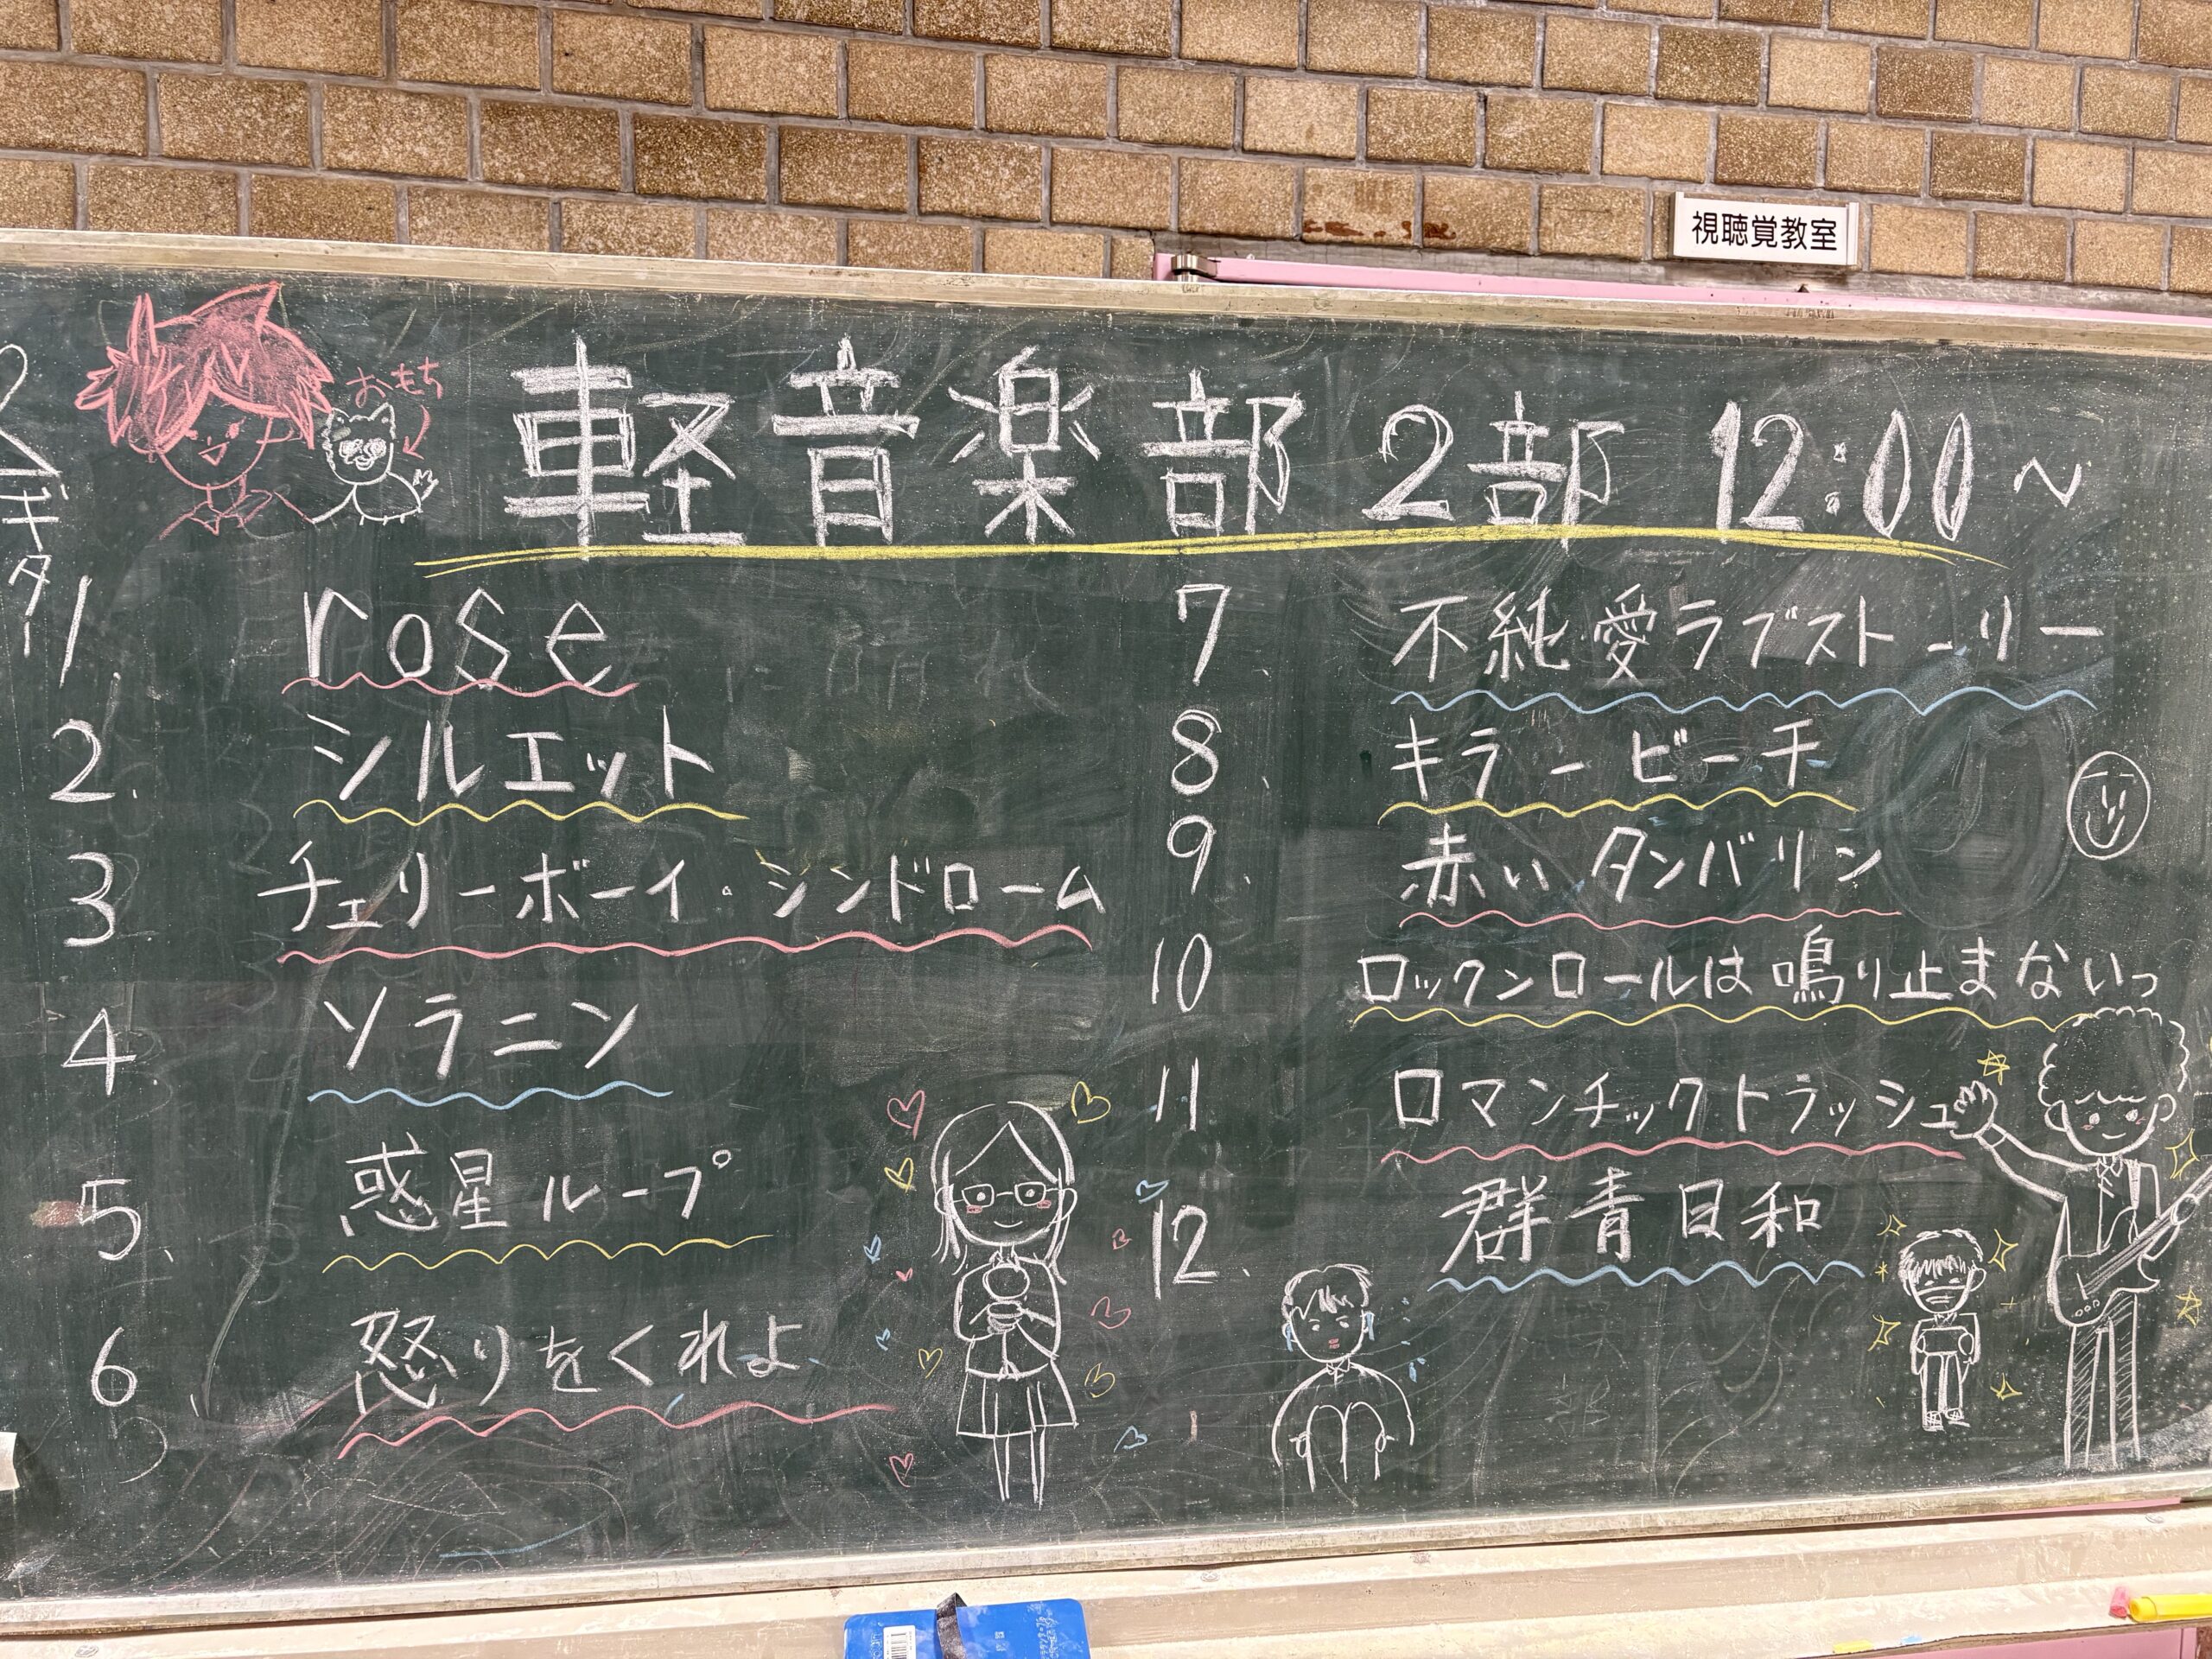 視聴覚教室
おもち
軽音楽部 2部 12:00~
ギター
1 rose
2. シルエット
3 チェリーボーイ・シンドローム
4 ソラニン
5. 惑星ループ
6 怒りをくれよ
7 不純愛ラブストーリー
8. キラービーチ
9. 赤いタンバリン
10 ロックンロールは鳴り止まないっ
11 ロマンチックトラッシュ
12. 群青日和